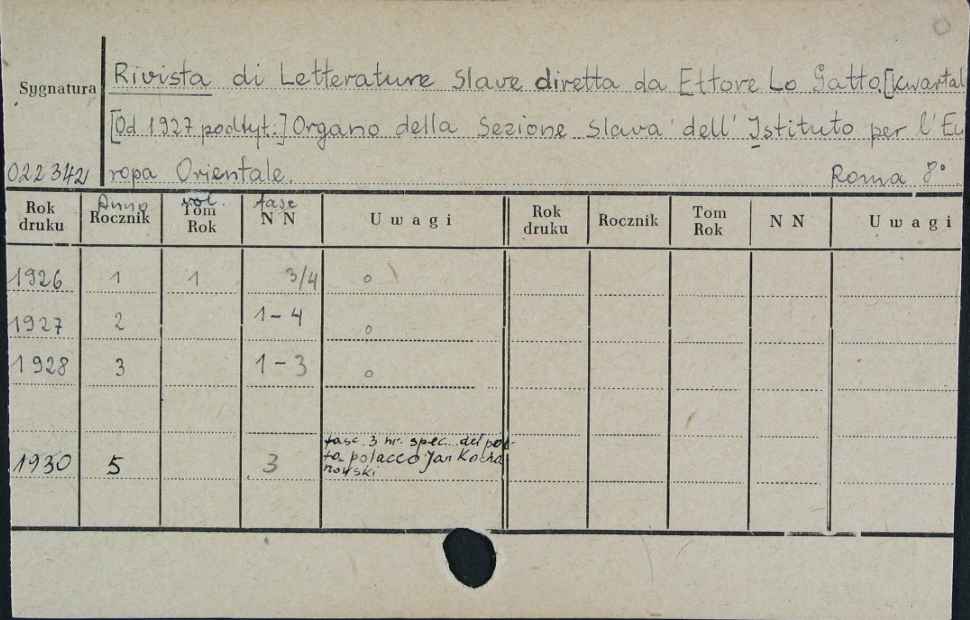 Rivista di Letterature Slave diretta da Ettore Lo Gatto.[kwartal
Sygnatura
[Od 1927 podtyt.:] Organo della Sezione Slava dell' Istituto per l'Eu
022342 ropa Orientale. Roma 8°.
Anno vol. fasc
Rok druku Rocznik Tom Rok N N Uwagi Rok druku Rocznik Tom Rok N N Uwagi
1926 1 1 3/4 o
1927 2 1-4 o
1928 3 1-3 o
fasc. 3 nr. spec. del poe-
1930 5 3 ta polacco Jan Kocha
nowski